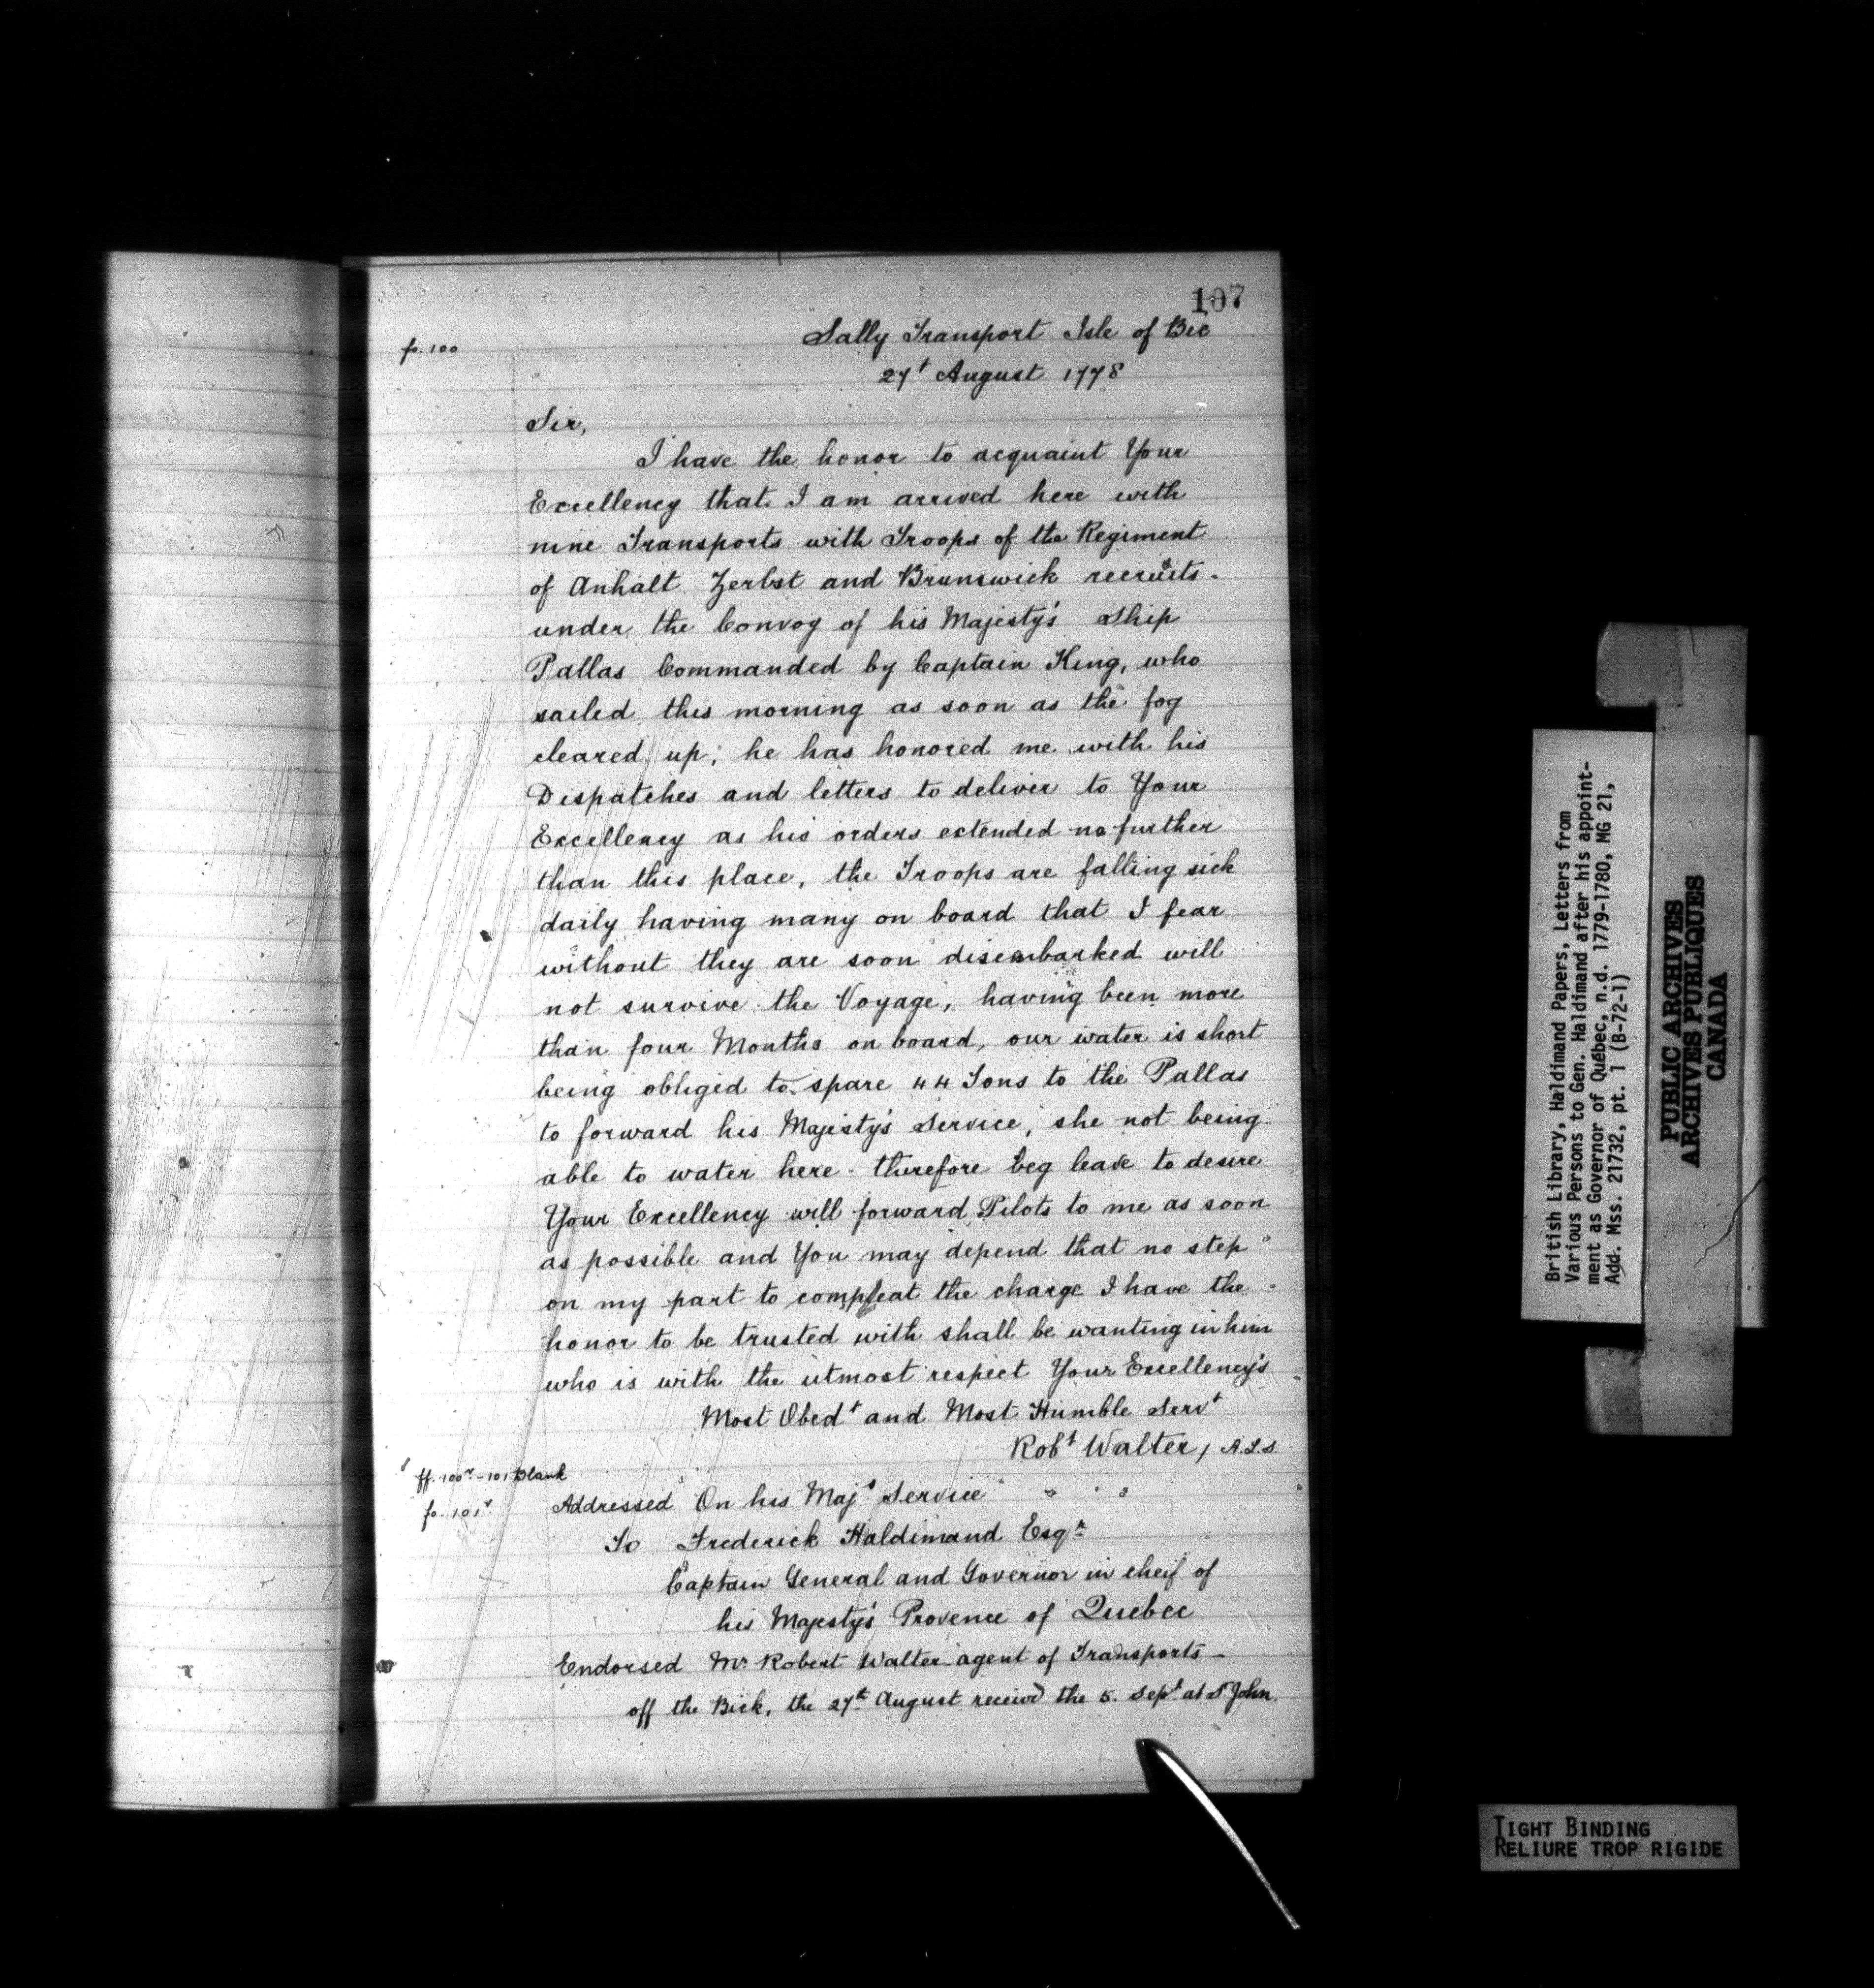 107
fo. 100
Sally Transport Isle of Bic
27t August 1778
Sir,
I have the honor to acquaint Your
Excellency that I am arrived here with
nine Transports with Troops of the Regiment
of Anhalt Zerbst and Brunswick recruits.
under the Convoy of his Majesty's Ship
Pallas Commanded by Captain King, who
sailed this morning as soon as the fog
cleared up; he has honored me with his
Dispatches and letters to deliver to Your
Excellency as his orders extended no further
than this place, the Troops are falling sick
daily having many on board that I fear
without they are soon disembarked will
not survive the Voyage, having been more
than four Months on board, our water is short
being obliged to spare 44 Tons to the Pallas
to forward his Majesty's Service, she not being
able to water here - therefore beg leave to desire
Your Excellency will forward Pilots to me as soon
as possible and You may depend that no step
on my part to compleat the charge I have the
honor to be trusted with shall be wanting in him
who is with the utmost respect Your Excellency's
Most Obedt and Most Humble Servt
Robt Walter, A.L.S.
ff. 100v - 101 Blank
fo. 101v
Addressed On his Majs Service
To Frederick Haldimand Esqr
Captain General and Governor in cheif of
his Majesty's Provence of Quebec
Endorsed Mr Robert Walter agent of Transports -
off the Bick, the 27th August receivd the 5. Sept at St John.
British Library, Haldimand Papers, Letters from
Various Persons to Gen. Haldimand after his appoint-
ment as Governor of Québec, n.d. 1779-1780, MG 21,
Add. Mss. 21732, pt. 1 (B-72-1)
PUBLIC ARCHIVES
ARCHIVES PUBLIQUES
CANADA
TIGHT BINDING
RELIURE TROP RIGIDE